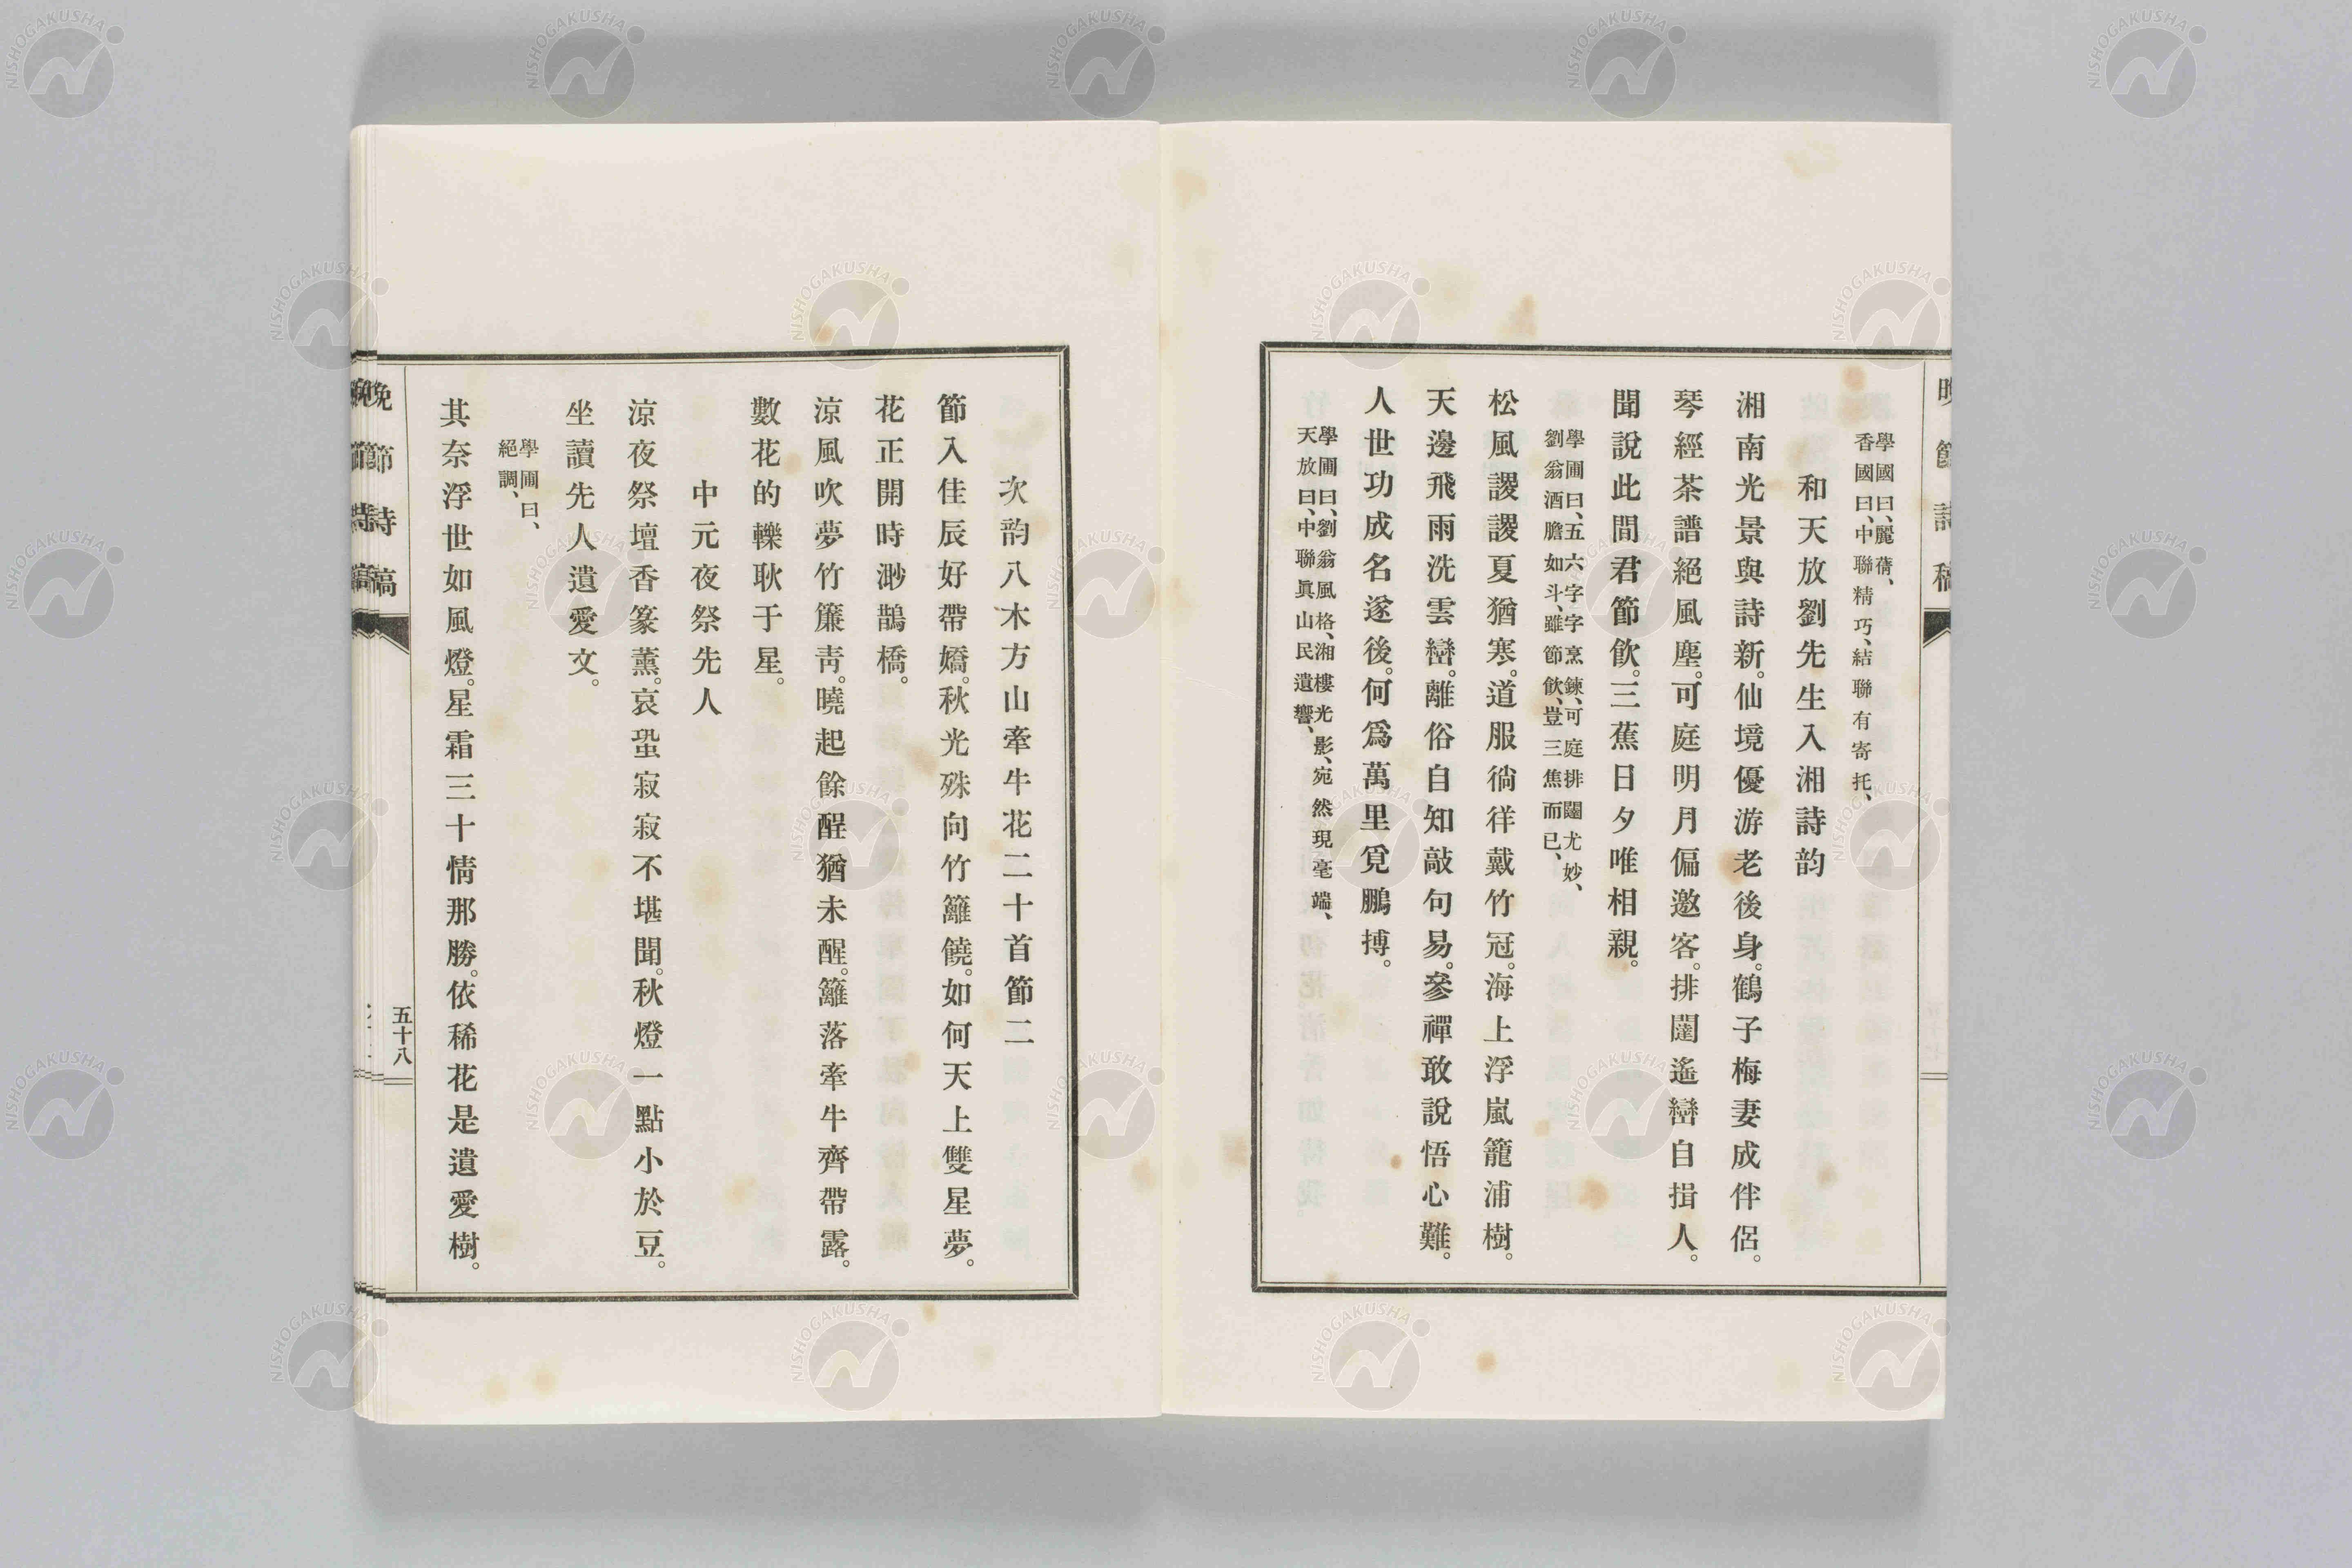 學國曰、麗蒨、
香國曰、中聯精巧、結聯有寄托、
和天放劉先生入湘詩韵
湘南光景與詩新。仙境優游老後身。鶴子梅妻成伴侶。
琴經茶譜絕風塵。可庭明月偏邀客。排闥遙巒自揖人。
聞說此間君節飮。三蕉日夕唯相親。
學圃曰、五六字字烹鍊、可庭排闥尤妙、
劉翁酒膽如斗、雖節飮、豈三焦而已、
松風謖謖夏猶寒。道服徜徉戴竹冠。海上浮嵐籠浦樹。
天邊飛雨洗雲巒。離俗自知敲句易。參禪敢說悟心難。
人世功成名遂後。何爲萬里覓鵬搏。
學圃曰、劉翁風格、湘樓光影、宛然現毫端、
天放曰、中聯眞山民遺響、
次韵八木方山牽牛花二十首節二
節入佳辰好帶嬌。秋光殊向竹籬饒。如何天上雙星夢。
花正開時渺鵲橋。
涼風吹夢竹簾靑。曉起餘酲猶未醒。籬落牽牛齊帶露。
數花的皪耿于星。
中元夜祭先人
涼夜祭壇香篆薰。哀蛩寂寂不堪聞。秋燈一點小於豆。
坐讀先人遺愛文。
學圃曰、
絕調、
其奈浮世如風燈。星霜三十情那勝。依稀花是遺愛樹。
晚節詩稿
五十八